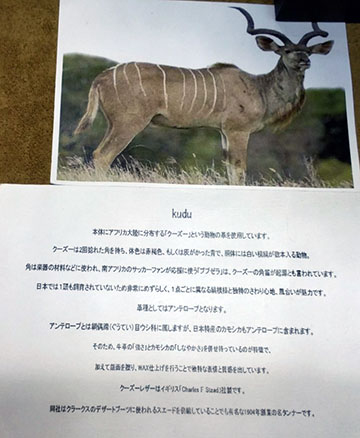 kudu
本体にアフリカ大陸に分布する「クーズー」という動物の革を使用しています。
クーズーは2回捻れた角を持ち、体色は赤褐色、もしくは灰がかった青で、胴体には白い横縞が数本入る動物。
角は楽器の材料などに使われ、南アフリカのサッカーファンが応援に使う「ブブゼラ」は、クーズーの角笛が起源とも言われています。
日本では1頭も飼育されていないため非常にめずらしく、1点ごとに異なる縞模様と独特のさわり心地、風合いが魅力です。
革種としてはアンテロープとなります。
アンテロープとは偶蹄類(ぐうてい)目ウシ科に属しますが、日本特産のカモシカもアンテロープに含まれます。
そのため、牛革の「強さ」とカモシカの「しなやかさ」を併せ持っているのが特徴で、
加えて銀面を擦り、WAX仕上げを行うことで独特な表情と質感を出しています。
クーズーレザーはイギリス「Charles F Stead」社製です。
同社はクラークスのデザートブーツに使われるスエードを供給していることでも有名な1904年創業の名タンナーです。